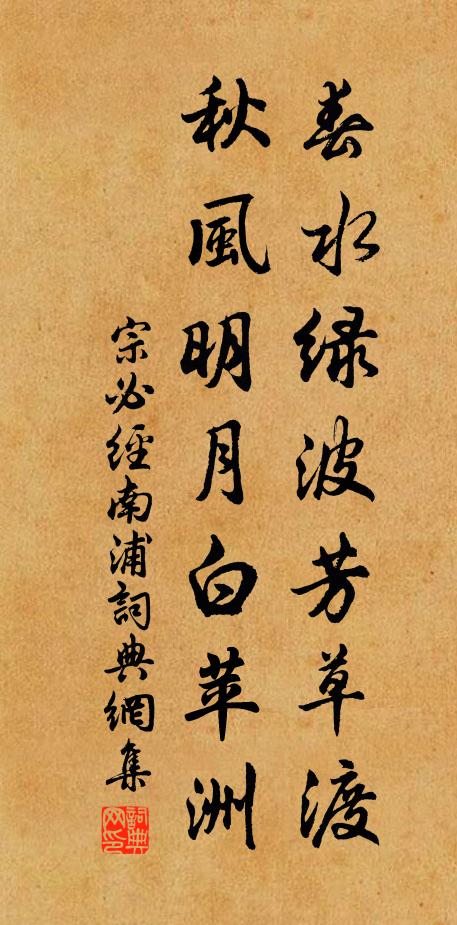 春水绿波芳草渡
秋風明月白苹洲
宗必經南浦詞典網集
詞典网印